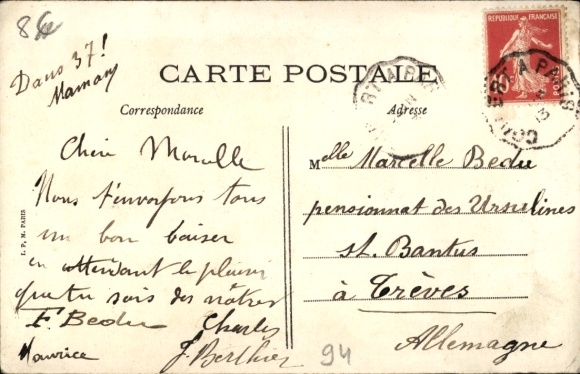 86
Dans 37!
Maman
CARTE POSTALE
Correspondance
Adresse
REPUBLIQUE FRANÇAISE
10
POSTES
A PARIS
13
Chère Marcelle
Nous t'envoyons tous
un bon baiser
en attendant le plaisir
que tu sois des nôtres
F. Bedu Charles
Maurice J. Berthier
I. P. M. PARIS
Melle Marcelle Bedu
pensionnat des Ursulines
st. Bantus
à Trèves
Allemagne
94